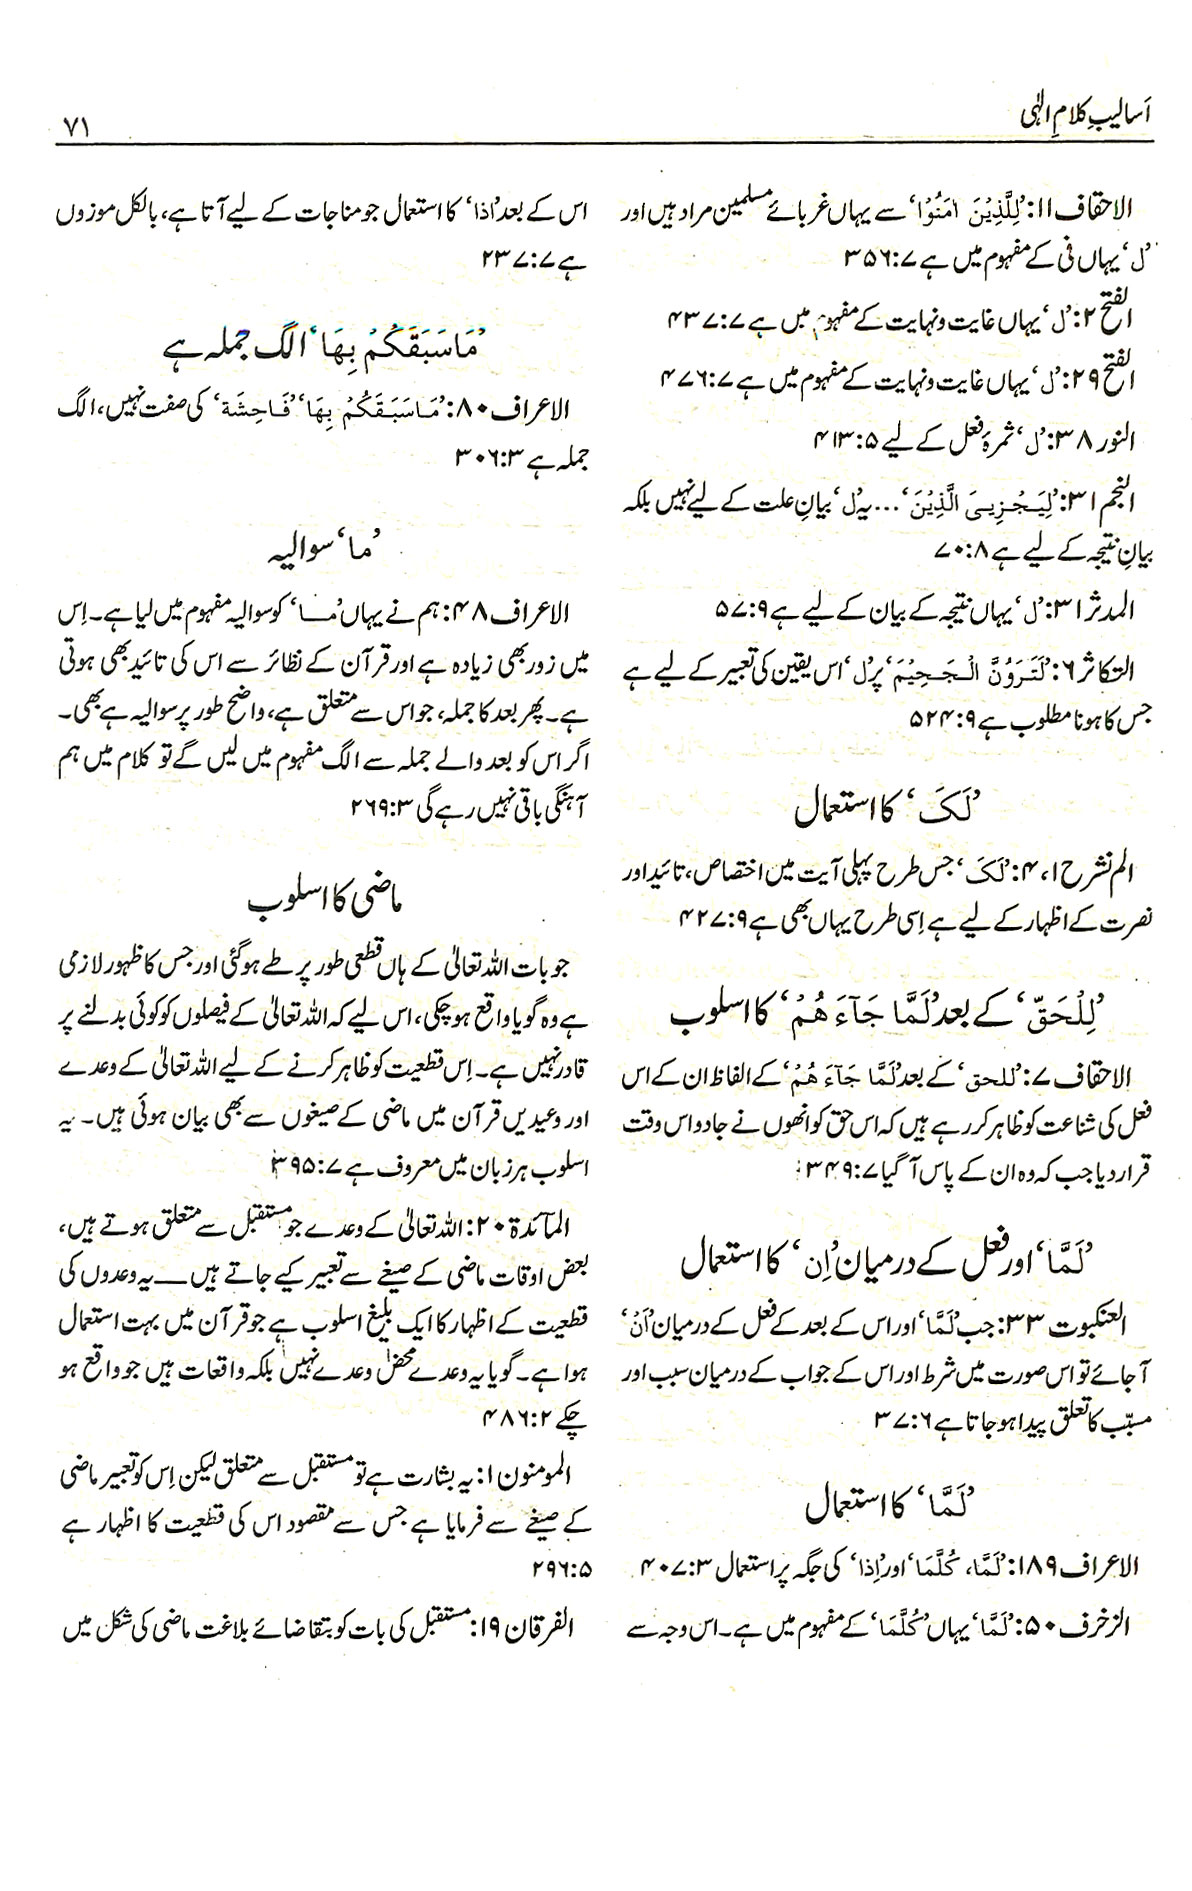 اَسالیبِ کلامِ الٰہی
۷۱
الاحقاف ۱۱: ’لِلَّذِیْنَ اٰمَنُوْا‘ سے یہاں غربائے مسلمین مراد ہیں اور
’ل‘ یہاں فی کے مفہوم میں ہے ۷:۳۵۶
الفتح ۲: ’ل‘ یہاں غایت و نہایت کے مفہوم میں ہے ۷:۴۳۷
الفتح ۲۹: ’ل‘ یہاں غایت و نہایت کے مفہوم میں ہے ۷:۴۷۶
النور ۳۸: ’ل‘ ثمرۂ فعل کے لیے ۵:۴۱۳
النجم ۳۱: ’لِیَجْزِیَ الَّذِیْنَ‘ ... یہ ’ل‘ بیانِ علت کے لیے نہیں بلکہ
بیانِ نتیجہ کے لیے ہے ۸:۷۰
المدثر ۳۱: ’ل‘ یہاں نتیجہ کے بیان کے لیے ہے ۹:۵۷
التکاثر ۶: ’لَتَرَوُنَّ الْجَحِیْمَ‘ پر ’ل‘ اس یقین کی تعبیر کے لیے ہے
جس کا ہونا مطلوب ہے ۹:۵۲۴
’لَکَ‘ کا استعمال
الم نشرح ۱، ۴: ’لَکَ‘ جس طرح پہلی آیت میں اختصاص، تائید اور
نصرت کے اظہار کے لیے ہے اِسی طرح یہاں بھی ہے ۹:۴۲۷
’لِلْحَقِّ‘ کے بعد ’لَمَّا جَآءَ ھُمْ‘ کا اسلوب
الاحقاف ۷: ’للحق‘ کے بعد ’لَمَّا جَآءَ ھُمْ‘ کے الفاظ ان کے اس
فعل کی شناعت کو ظاہر کر رہے ہیں کہ اس حق کو انھوں نے جادو اس وقت
قرار دیا جب کہ وہ ان کے پاس آ گیا ۷:۳۴۹
’لَمَّا‘ اور فعل کے درمیان ’اِن‘ کا استعمال
العنکبوت ۳۳: جب ’لَمَّا‘ اور اس کے بعد کے فعل کے درمیان ’اَنْ‘
آ جائے تو اس صورت میں شرط اور اس کے جواب کے درمیان سبب اور
مسبّب کا تعلق پیدا ہو جاتا ہے ۶:۳۷
’لَمَّا‘ کا استعمال
الاعراف ۱۸۹: ’لَمَّا، کُلَّمَا‘ اور ’اِذا‘ کی جگہ پر استعمال ۳:۴۰۷
الزخرف ۵۰: ’لَمَّا‘ یہاں ’کُلَّمَا‘ کے مفہوم میں ہے۔ اس وجہ سے
اس کے بعد ’اذا‘ کا استعمال جو مناجات کے لیے آتا ہے، بالکل موزوں
ہے ۷:۲۳۷
’مَا سَبَقَکُمْ بِھَا‘ الگ جملہ ہے
الاعراف ۸۰: ’مَا سَبَقَکُمْ بِھَا‘ ’فَاحِشَة‘ کی صفت نہیں، الگ
جملہ ہے ۳:۳۰۶
’ما‘ سوالیہ
الاعراف ۴۸: ہم نے یہاں ’مـا‘ کو سوالیہ مفہوم میں لیا ہے۔ اِس
میں زور بھی زیادہ ہے اور قرآن کے نظائر سے اس کی تائید بھی ہوتی
ہے۔ پھر بعد کا جملہ، جو اس سے متعلق ہے، واضح طور پر سوالیہ ہے بھی۔
اگر اس کو بعد والے جملہ سے الگ مفہوم میں لیں گے تو کلام میں ہم
آہنگی باقی نہیں رہے گی ۳:۲۶۹
ماضی کا اسلوب
جو بات اللہ تعالیٰ کے ہاں قطعی طور پر طے ہو گئی اور جس کا ظہور لازمی
ہے وہ گویا واقع ہو چکی، اس لیے کہ اللہ تعالیٰ کے فیصلوں کو کوئی بدلنے پر
قادر نہیں ہے۔ اِس قطعیت کو ظاہر کرنے کے لیے اللہ تعالیٰ کے وعدے
اور وعیدیں قرآن میں ماضی کے صیغوں سے بھی بیان ہوئی ہیں۔ یہ
اسلوب ہر زبان میں معروف ہے ۷:۳۹۵
المآئدة ۲۰: اللہ تعالیٰ کے وعدے جو مستقبل سے متعلق ہوتے ہیں،
بعض اوقات ماضی کے صیغے سے تعبیر کیے جاتے ہیں ــــ یہ وعدوں کی
قطعیت کے اظہار کا ایک بلیغ اسلوب ہے جو قرآن میں بہت استعمال
ہوا ہے۔ گویا یہ وعدے محض وعدے نہیں بلکہ واقعات ہیں جو واقع ہو
چکے ۲:۴۸۶
المومنون ۱: یہ بشارت ہے تو مستقبل سے متعلق لیکن اِس کو تعبیر ماضی
کے صیغے سے فرمایا ہے جس سے مقصود اس کی قطعیت کا اظہار ہے
۵:۲۹۶
الفرقان ۱۹: مستقبل کی بات کو بتقاضائے بلاغت ماضی کی شکل میں